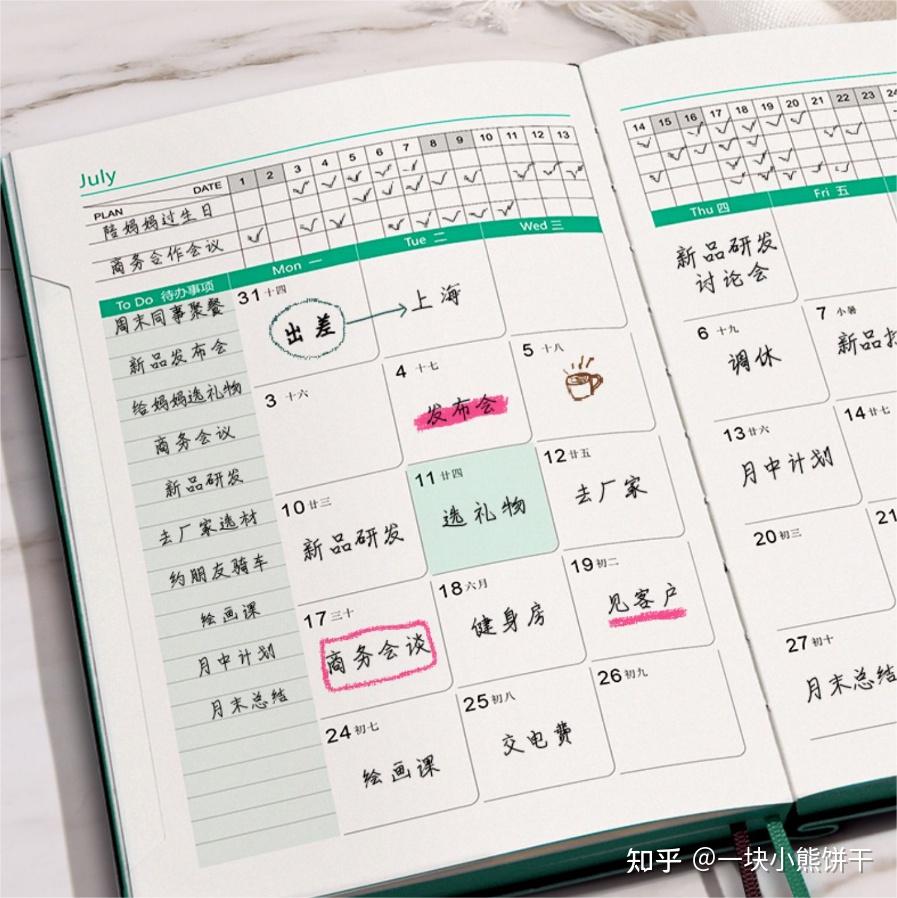 July
DATE 1 2 3 4 5 6 7 8 9 10 11 12 13
PLAN
陪妈妈过生日
商务合作会议
To Do 待办事项
周末同事聚餐
新品发布会
给妈妈选礼物
商务会议
新品研发
去厂家选材
约朋友骑车
绘画课
月中计划
月末总结
Mon 一 Tue 二 Wed 三
31 十四
出差
上海
3 十六
4 十七
发布会
5 十八
10 廿三
新品研发
11 廿四
选礼物
12 廿五
去厂家
17 三十
商务会谈
18 六月
健身房
19 初二
见客户
24 初七
绘画课
25 初八
交电费
26 初九
14 15 16 17 18 19 20 21 22 23 24
Thu 四 Fri 五
新品研发
讨论会
6 十九
调休
7 小暑
新品
13 廿六
月中计划
14 廿七
20 初三
21
27 初十
月末总结
知乎 @一块小熊饼干